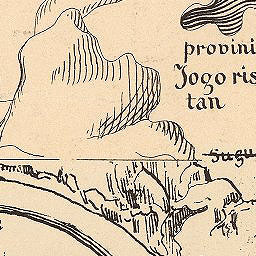 provini
Jogo ris
tan
Sugu